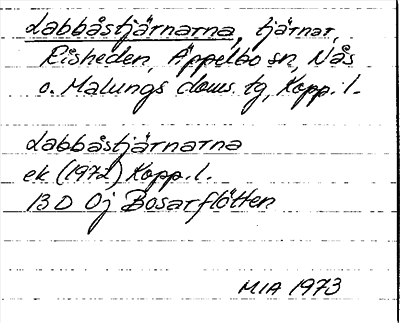 Labbåstjärnarna, tjärnar,
Risheden, Äppelbo sn, Nås
o. Malungs doms. tg, Kopp. l.
Labbåstjärnarna
ek (1972) Kopp. l.
13 D 0j Bosarflötten
MIA 1973